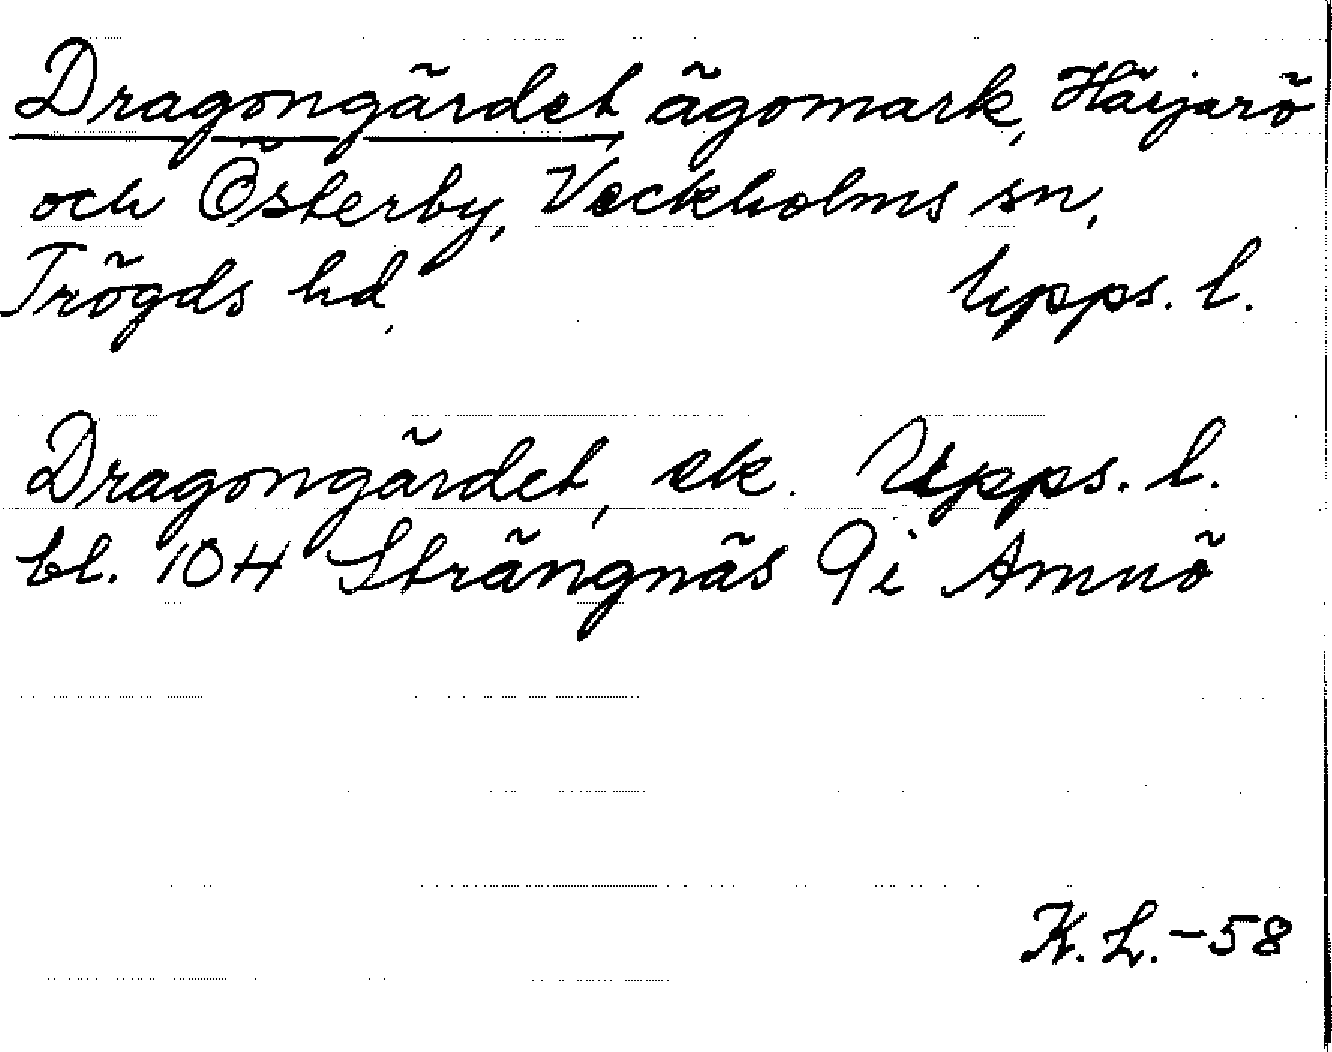 Dragongärdet, ägomark, Härjarö
och Österby, Veckholms sn,
Trögds hd, Upps. l.
Dragongärdet, ek. Upps. l.
bl. 104 Strängnäs 9i Arnnö
K. L. -58